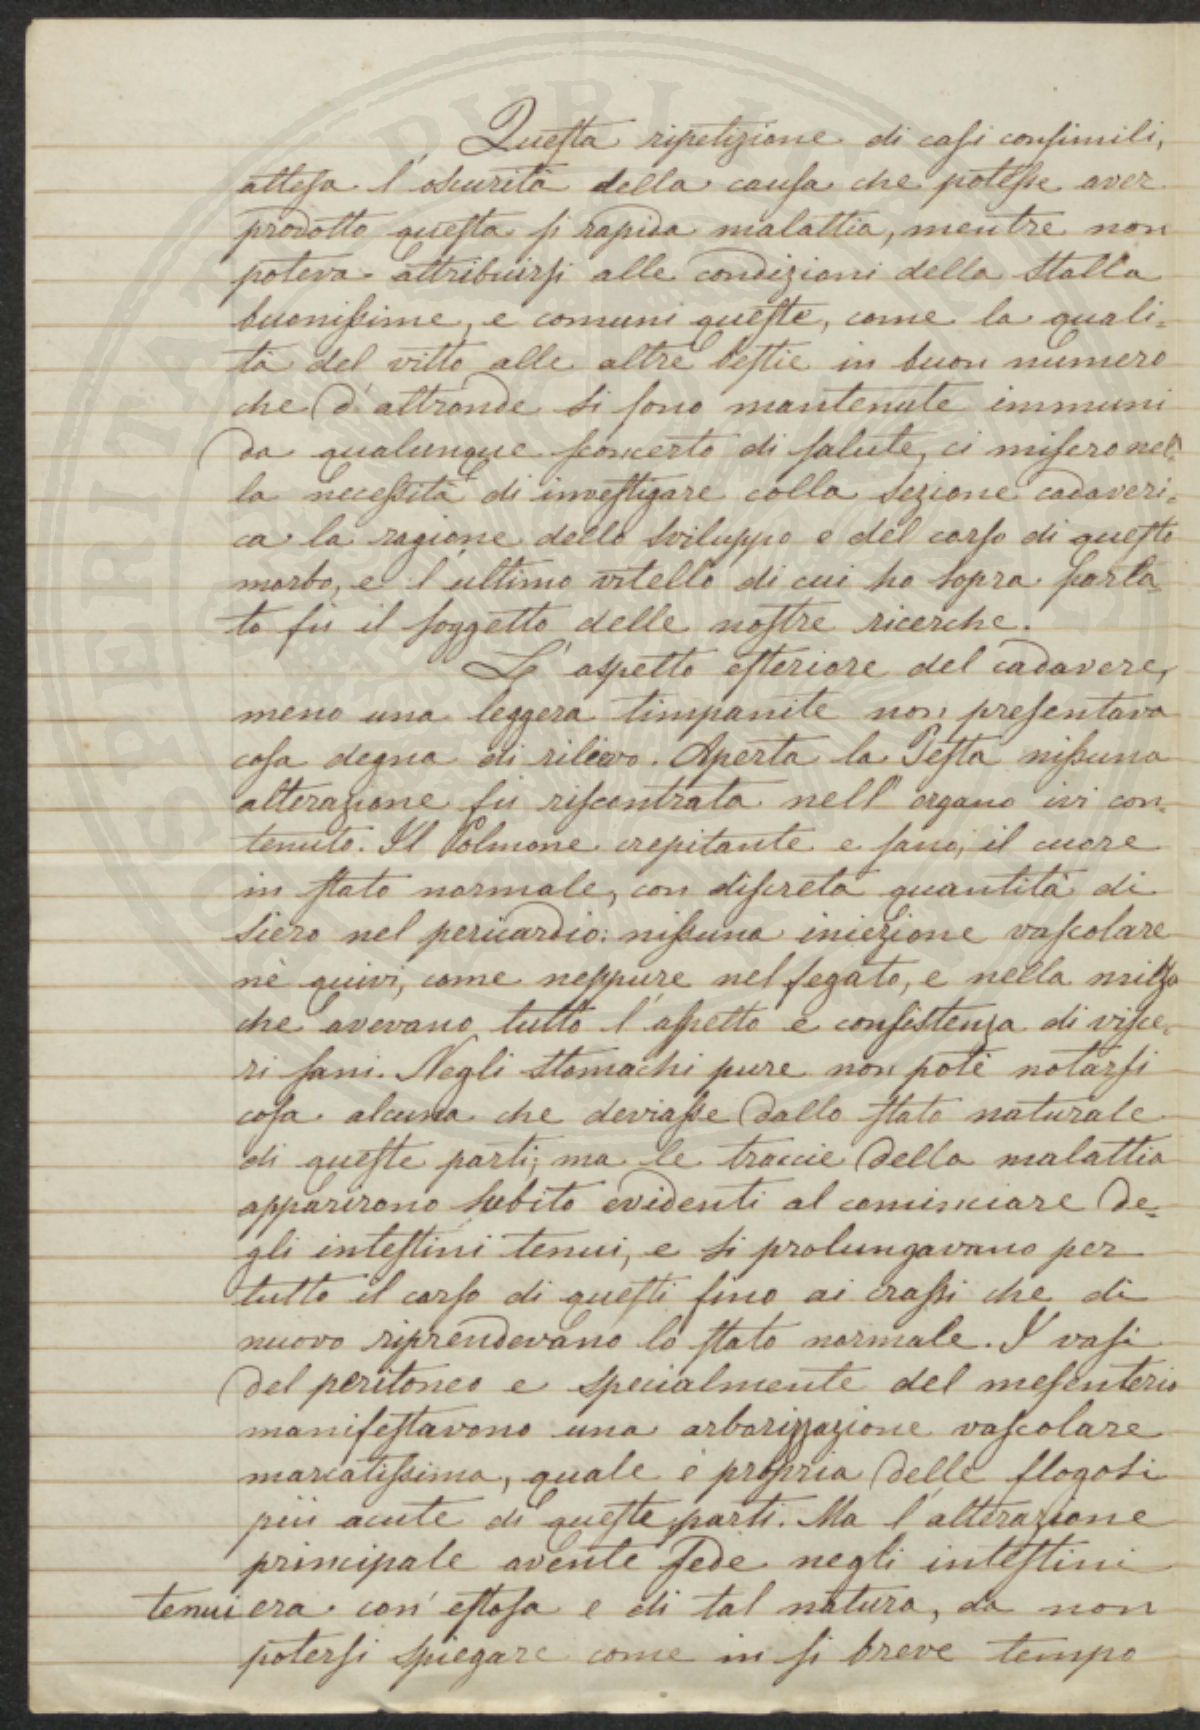 Questa ripetizione di casi consimili,
attesa l'oscurità della causa che potesse aver
prodotto questa si rapida malattia, mentre non
poteva attribuirsi alle condizioni della stalla
buonissime, e comuni queste, come la quali=
tà del vitto alle altre bestie in buon numero
che d'altronde si sono mantenute immuni
da qualunque sconcerto di salute, ci misero nel=
la necessità di investigare colla sezione cadaveri=
ca la ragione dello sviluppo e del corso di questo
morbo, e l'ultimo vitello di cui ho sopra parla=
to fù il soggetto delle nostre ricerche.
L'aspetto esteriore del cadavere,
meno una leggera timpanite non presentava
cosa degna di rilievo. Aperta la Testa nissuna
alterazione fù riscontrata nell'organo ivi con=
tenuto. Il Polmone crepitante e sano, il cuore
in stato normale, con discreta quantità di
siero nel pericardio: nissuna iniezione vascolare
nè quivi, come neppure nel fegato, e nella milza
che avevano tutto l'aspetto e consistenza di visce=
ri sani. Negli stomachi pure non potè notarsi
cosa alcuna che deviasse dallo stato naturale
di queste parti; ma le traccie della malattia
apparirono subito evidenti al cominciare de=
gli intestini tenui, e si prolungavano per
tutto il corso di questi fino ai crassi che di
nuovo riprendevano lo stato normale. I vasi
del peritoneo e specialmente del mesenterio
manifestavono una arborizzazione vascolare
marcatissima, quale è propria delle flogosi
più acute di queste parti. Ma l'alterazione
principale avente sede negli intestini
tenui era con' estosa e di tal natura, da non
potersi spiegare come in si breve tempo